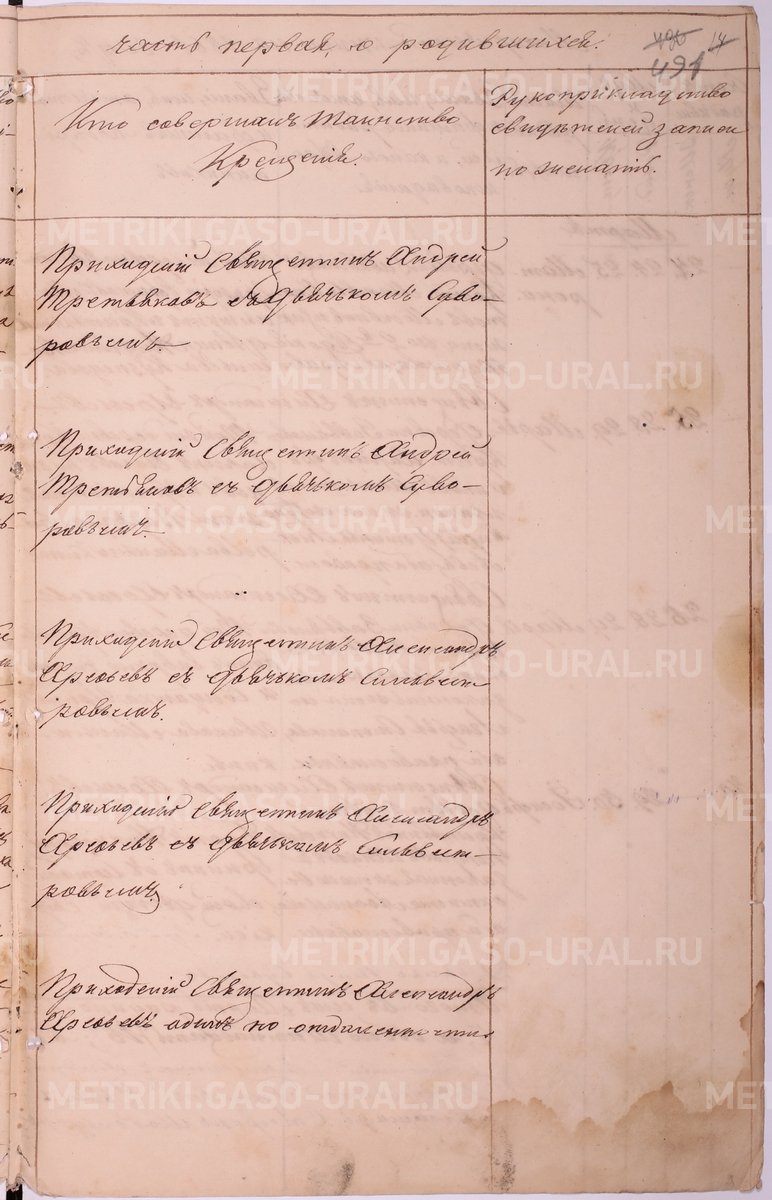 часть первая, о родившихся.
490 14
491
Кто совершалъ таинство
Крещенія.
Рукоприкладство
свидѣтелей записи
по желанію.
Приходскій Священникъ Андрей
Третьяковъ съ дьячькомъ Суво-
ровымъ.
Приходскій Священникъ Андрей
Третьяковъ съ дьячькомъ Суво-
ровымъ.
Приходскій Священникъ Александръ
Арефьевъ съ дьячькомъ Сильвест-
ровымъ.
Приходскій Священникъ Александръ
Арефьевъ съ дьячькомъ Сильвест-
ровымъ.
Приходскій Священникъ Александръ
Арефьевъ одинъ по отдаленности
METRIKI.GASO-URAL.RU